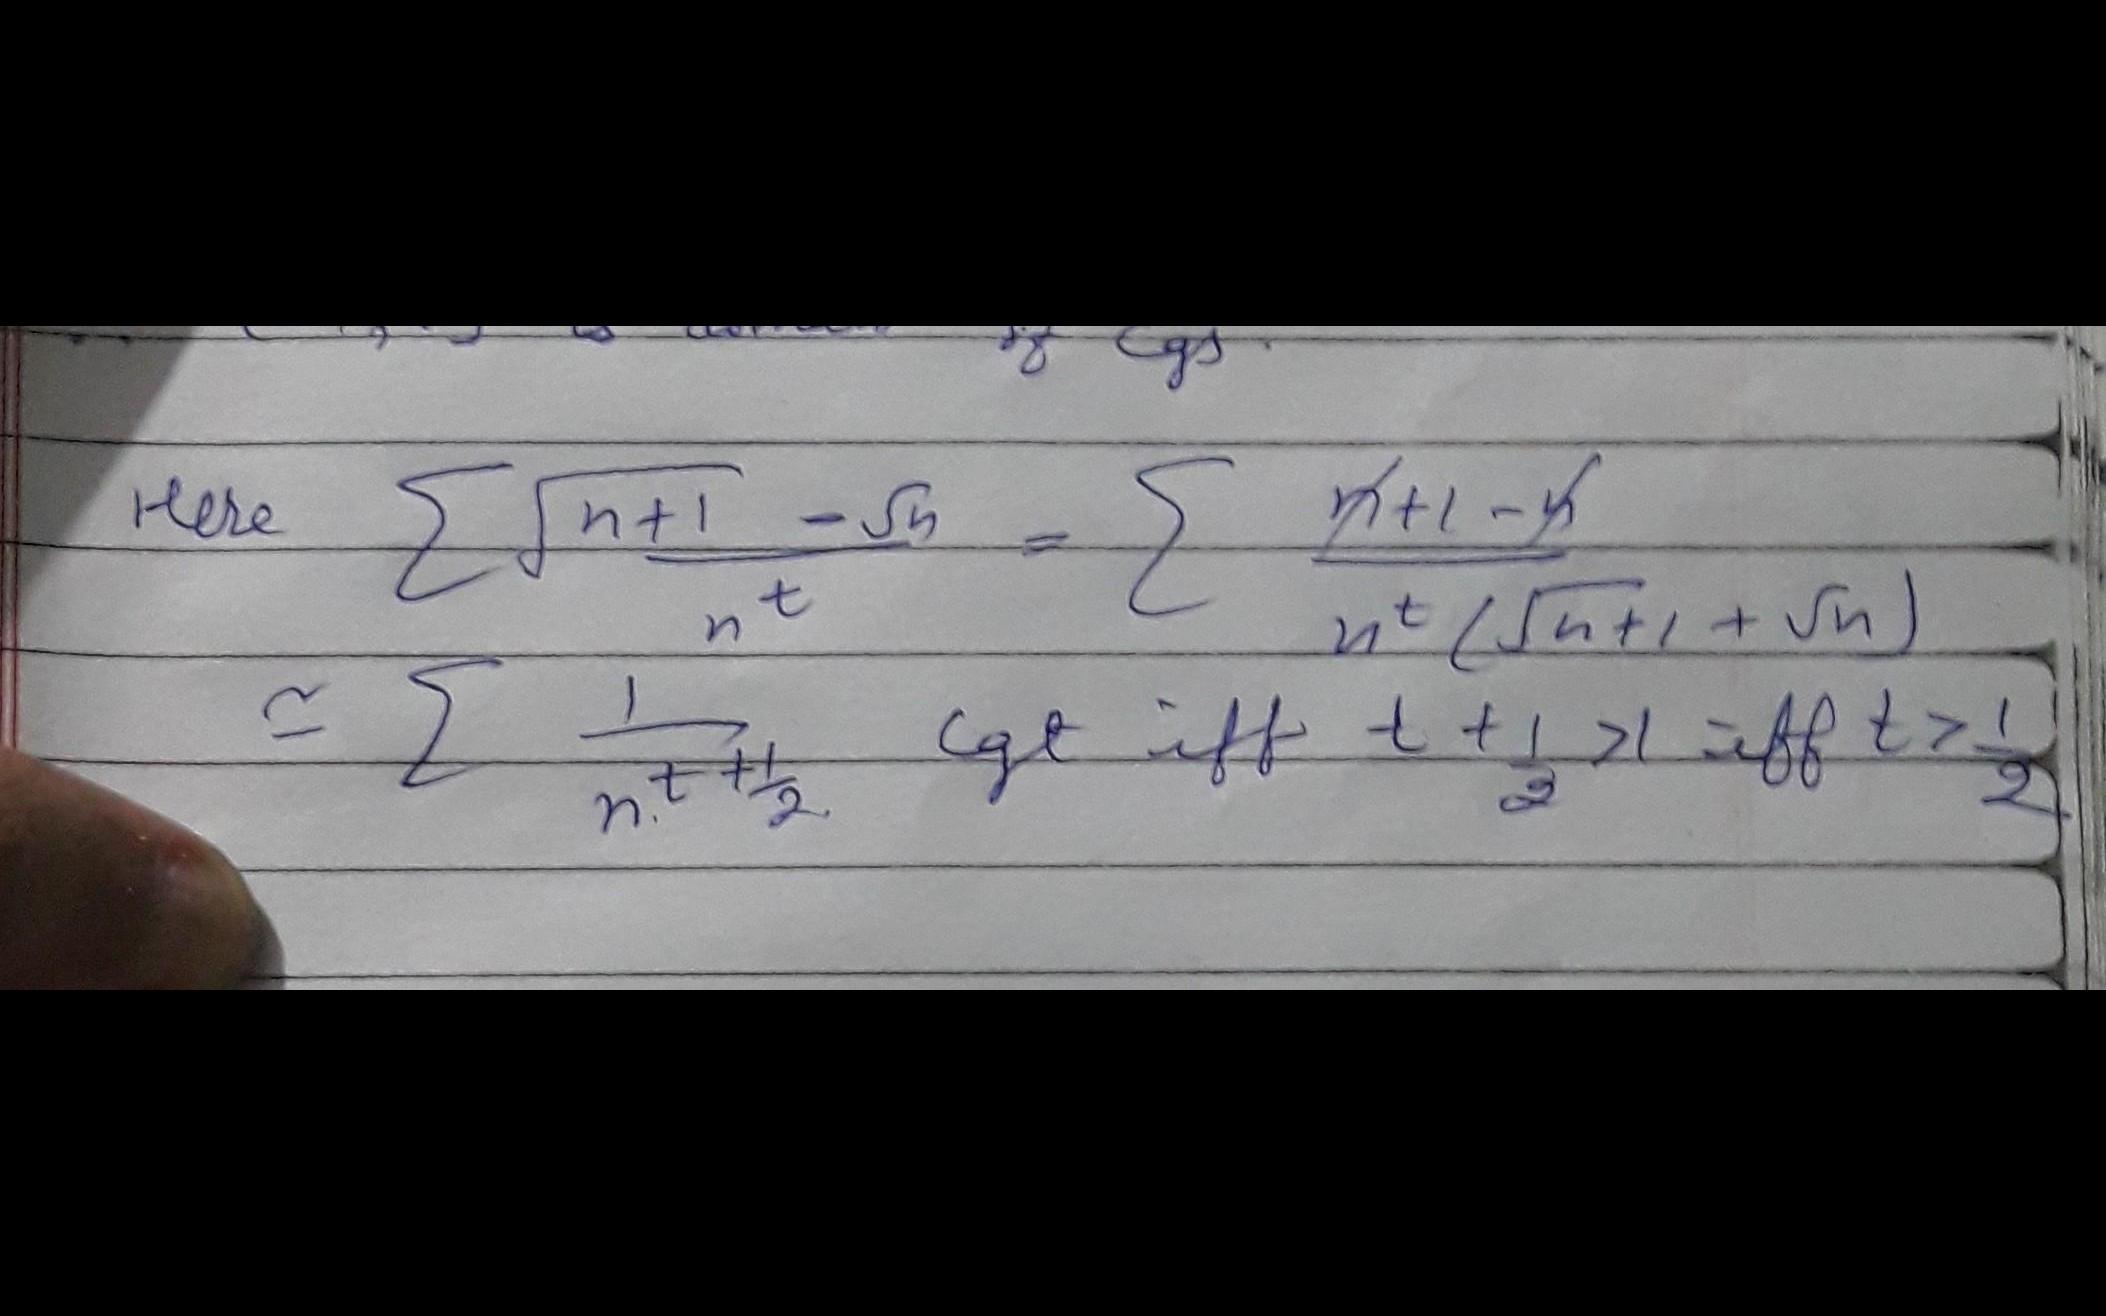 is domain of Cgs.
Here ∑ (√(n+1) - √n) / n^t = ∑ (n+1-n) / (n^t (√(n+1) + √n))
≃ ∑ 1 / n^(t+1/2) Cgt iff t + 1/2 > 1 iff t > 1/2